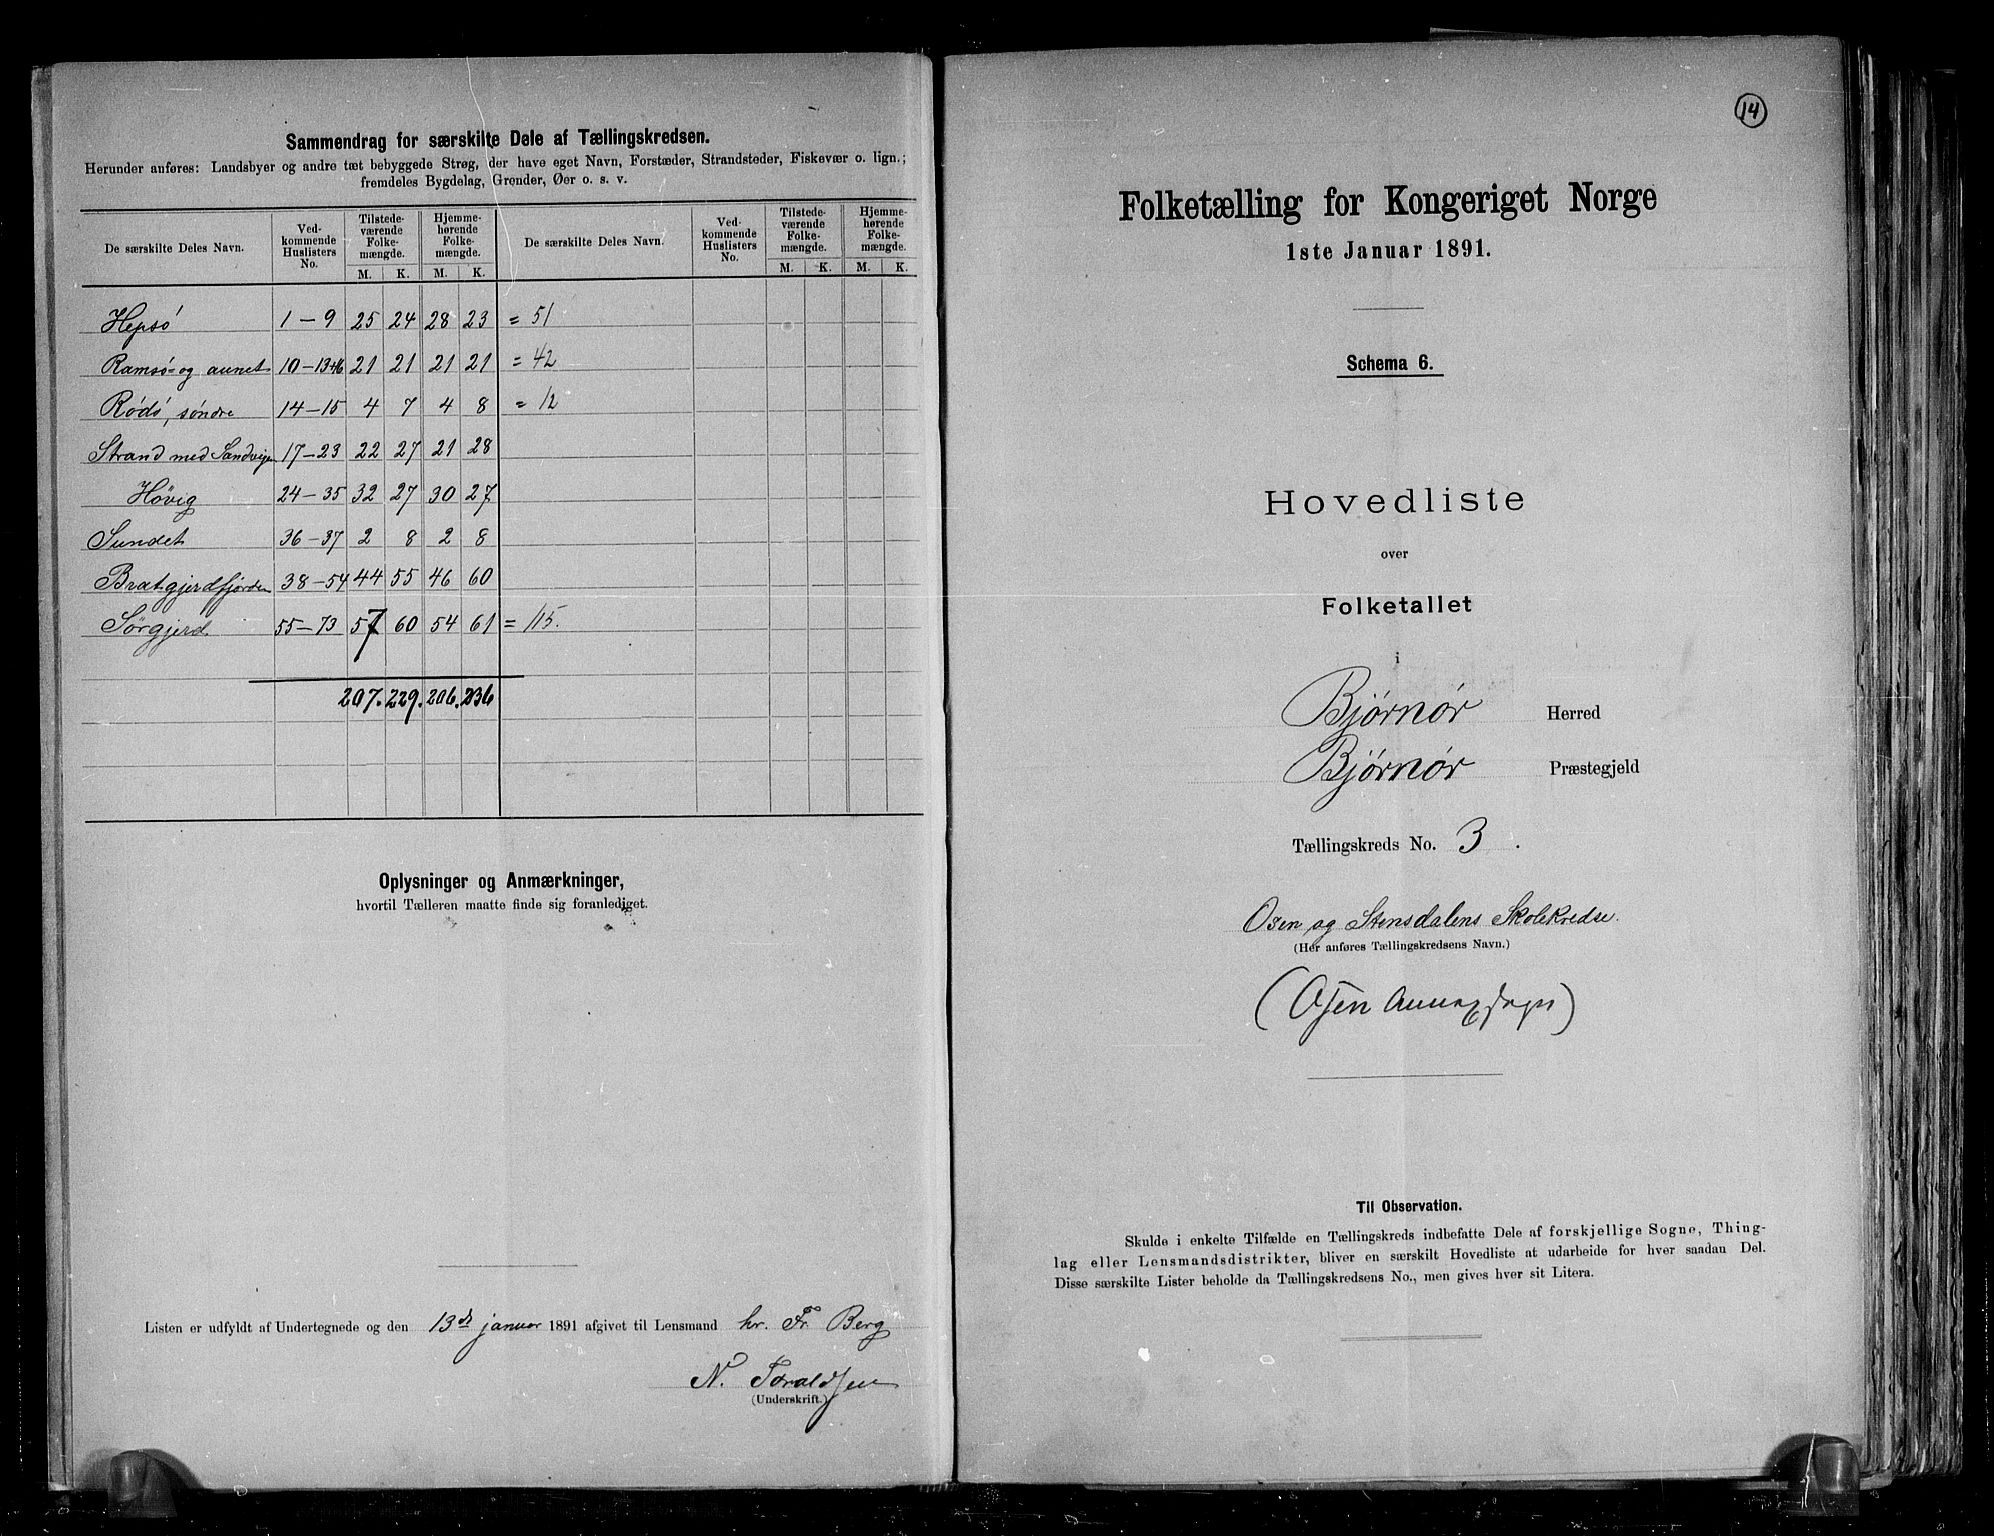 Sammendrag for særskilte Dele af Tællingskredsen.
Herunder anføres: Landsbyer og andre tæt bebyggede Strøg, der have eget Navn, Forstæder, Strandsteder, Fiskevær o. lign.;
fremdeles Bygdelag, Grender, Øer o. s. v.
De særskilte Deles Navn. Ved-kommende Huslisters No. Tilstede-værende Folke-mængde. Hjemme-hørende Folke-mængde. De særskilte Deles Navn. Ved-kommende Huslisters No. Tilstede-værende Folke-mængde. Hjemme-hørende Folke-mængde.
M. K. M. K. M. K. M. K.
Hepsø 1 – 9 25 24 28 23 = 51
Ramsø- og aunet 10 – 13+16 21 21 21 21 = 42
Rødø, søndre 14 – 15 4 7 4 8 = 12
Strand med Sandvigen 17 – 23 22 27 21 28
Høvig 24 – 35 32 27 30 27
Sundet 36 – 37 2 8 2 8
Bratgjerdfjorden 38 – 54 44 55 46 60
Sørgjerd 55 – 73 57 60 54 61 = 115.
207. 229. 206. 236
Oplysninger og Anmærkninger,
hvortil Tælleren maatte finde sig foranlediget.
Listen er udfyldt af Undertegnede og den 13de januar 1891 afgivet til Lensmand hr. Fr. Berg
N. Taraldsen
(Underskrift.)
14
Folketælling for Kongeriget Norge
1ste Januar 1891.
Schema 6.
Hovedliste
over
Folketallet
i
Bjørnør Herred
Bjørnør Præstegjeld
Tællingskreds No. 3.
Osen og Stensdalens Skolekredse.
(Her anføres Tællingskredsens Navn.)
(Osen Annexsogn)
Til Observation.
Skulde i enkelte Tilfælde en Tællingskreds indbefatte Dele af forskjellige Sogne, Thing-
lag eller Lensmandsdistrikter, bliver en særskilt Hovedliste at udarbeide for hver saadan Del.
Disse særskilte Lister beholde da Tællingskredsens No., men gives hver sit Litera.